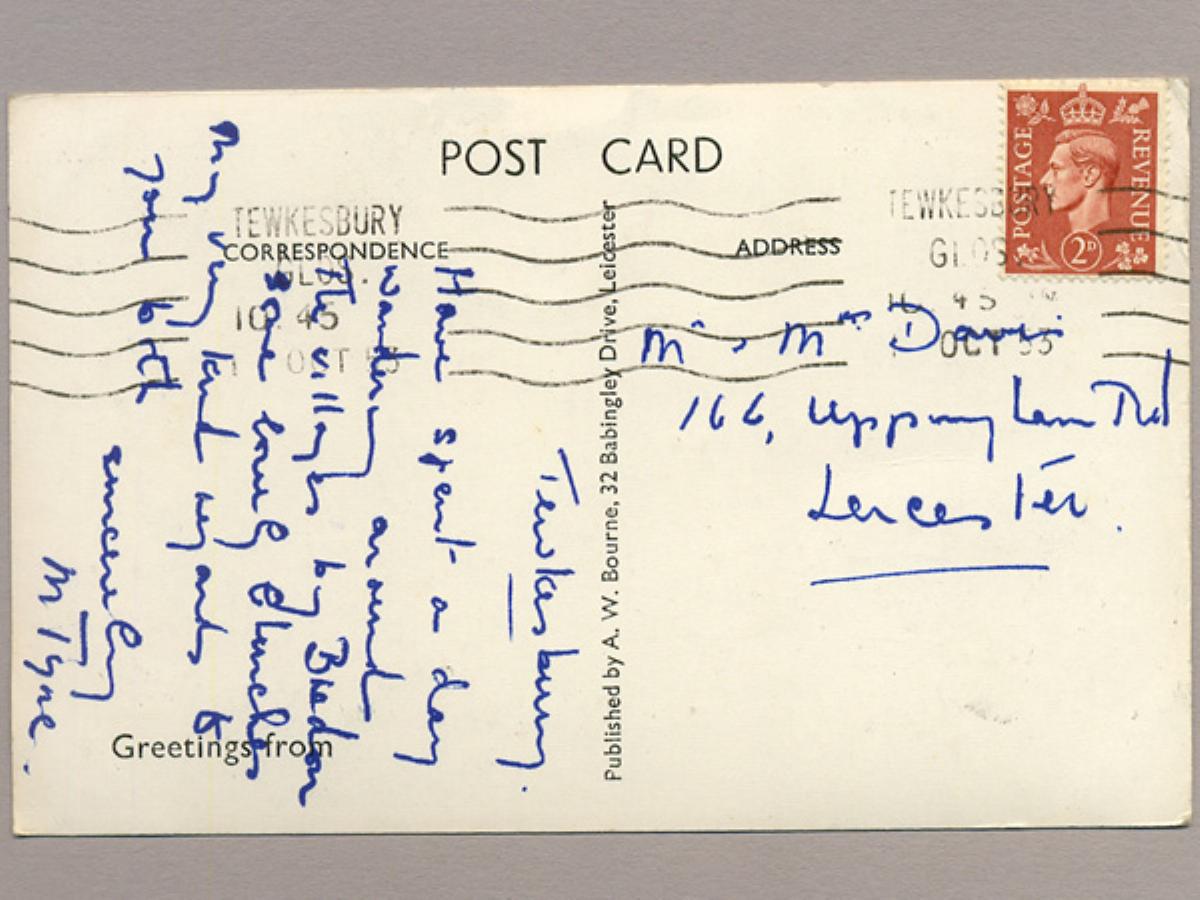 POST CARD
CORRESPONDENCE
ADDRESS
Greetings from
Published by A. W. Bourne, 32 Babingley Drive, Leicester
POSTAGE
REVENUE
2D
TEWKESBURY
GLOS.
10 45
OCT 53
TEWKESBURY
GLOS
10 45
OCT 53
Tewkesbury.
Have spent a day
wandering around
The villages by Bredon
some lovely Churches
My very kind regards to
you both
sincerely
M Tyne.
Mr & Mrs Davis
166, Uppingham Rd
Leicester.